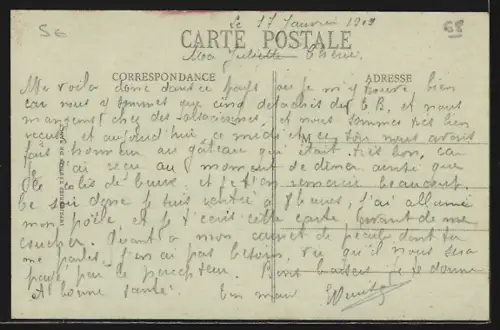 56
68
Le 17 Janvier 1919
CARTE POSTALE
Ma Juliette Chérie,
CORRESPONDANCE
ADRESSE
Me voila donc dans ce pays que je m'y trouve bien
car nous y sommes que cinq détachés du EB, et nous
mangeons chez des alsaciennes, et nous sommes très bien
reçus, et aujourd'hui ce midi et Meyton nous avons
fait honneur au gâteau qui était très bon, car
j'ai reçu au moment de diner ainsi que
le colis de buse, et je t'en remercie beaucoup.
Ce soir donc je suis rentré à heures, j'ai allumé
mon poêle et je t'écris cette carte avant de me
coucher. Quant à mon carnet de pécule dont tu
me parles, j'en ai pas besoin, vu qu'il nous sera
payé par le percepteur. Bons baisers je te donne
et bonne santé. Ton mari